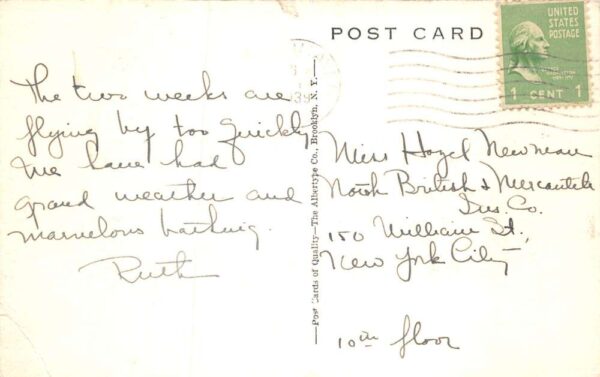 POST CARD
UNITED
STATES
POSTAGE
1 CENT 1
The two weeks are
flying by too quickly
We have had
grand weather and
marvelous bathing.
Ruth
—Post Cards of Quality—The Albertype Co., Brooklyn, N. Y.—
Miss Hazel Newman
North British & Mercantile
Ins. Co.
150 William St.,
New York City
10th floor